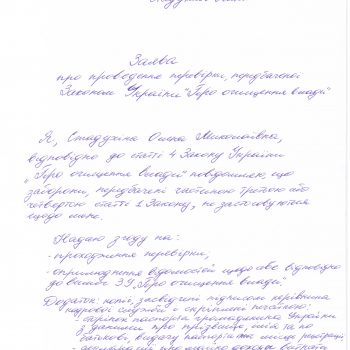 Заява
про проведення перевірки, передбаченої
Законом України "Про очищення влади"
Я, Олена Миколаївна,
відповідно до статті 4 Закону України
"Про очищення влади" повідомляю, що
заборони, передбачені частиною третьою або
четвертою статті 1 Закону, не застосовуються
щодо мене.
Надаю згоду на:
- проходження перевірки,
- оприлюднення відомостей щодо себе відповідно
до вимог ЗУ "Про очищення влади".
Додаток: копії, засвідчені підписом керівника
кадрової служби і скріплені печаткою:
- сторінок паспорта громадянина України
з даними про прізвище, ім'я та по
батькові, видачу паспорта та місце реєстрації,
- декларації про майно, доходи, витрати